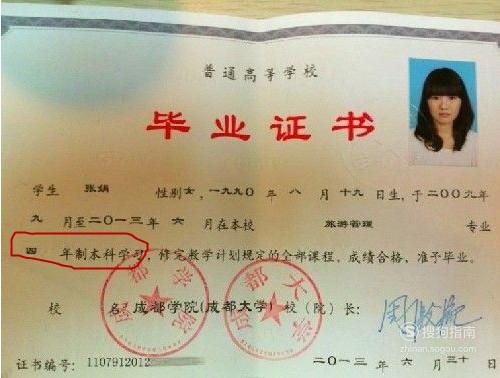 普通高等学校
毕业证书
学生 张娟 性别女,一九九〇年 八 月 十九 日生,于二〇〇九年
九 月至二〇一三年 六 月在本校 旅游管理 专业
四 年制本科学习,修完教学计划规定的全部课程,成绩合格,准予毕业。
校 名:成都学院(成都大学) 校(院)长:
成都学院
成都大学
证书编号:1107912012 二〇一三年 六 月 三十 日
搜狗指南
zhinan.sogou.com